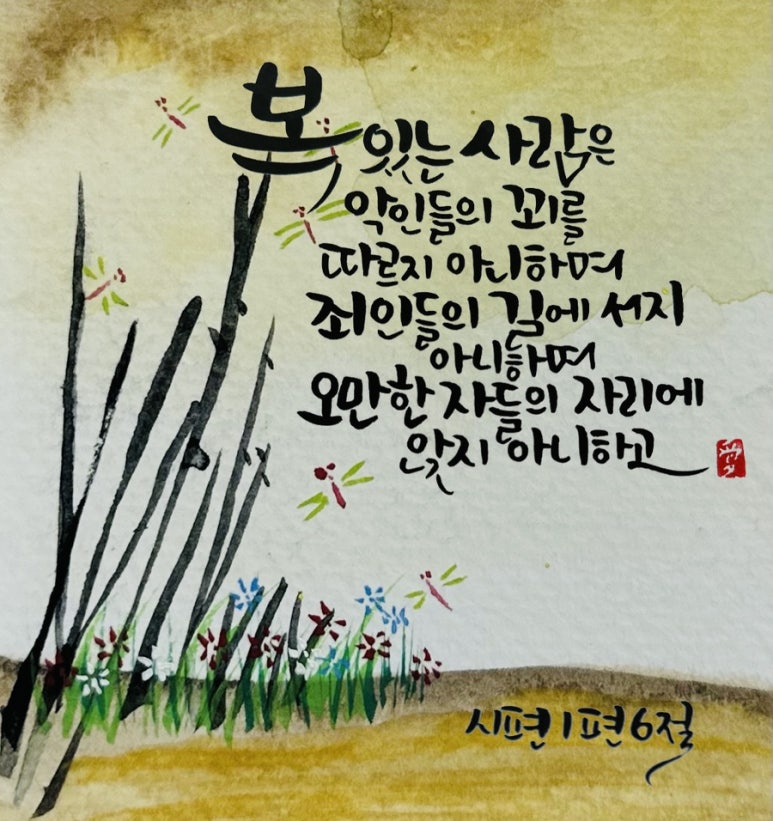 복 있는 사람은
악인들의 꾀를
따르지 아니하며
죄인들의 길에 서지
아니하며
오만한 자들의 자리에
앉지 아니하고
시편 1편 6절